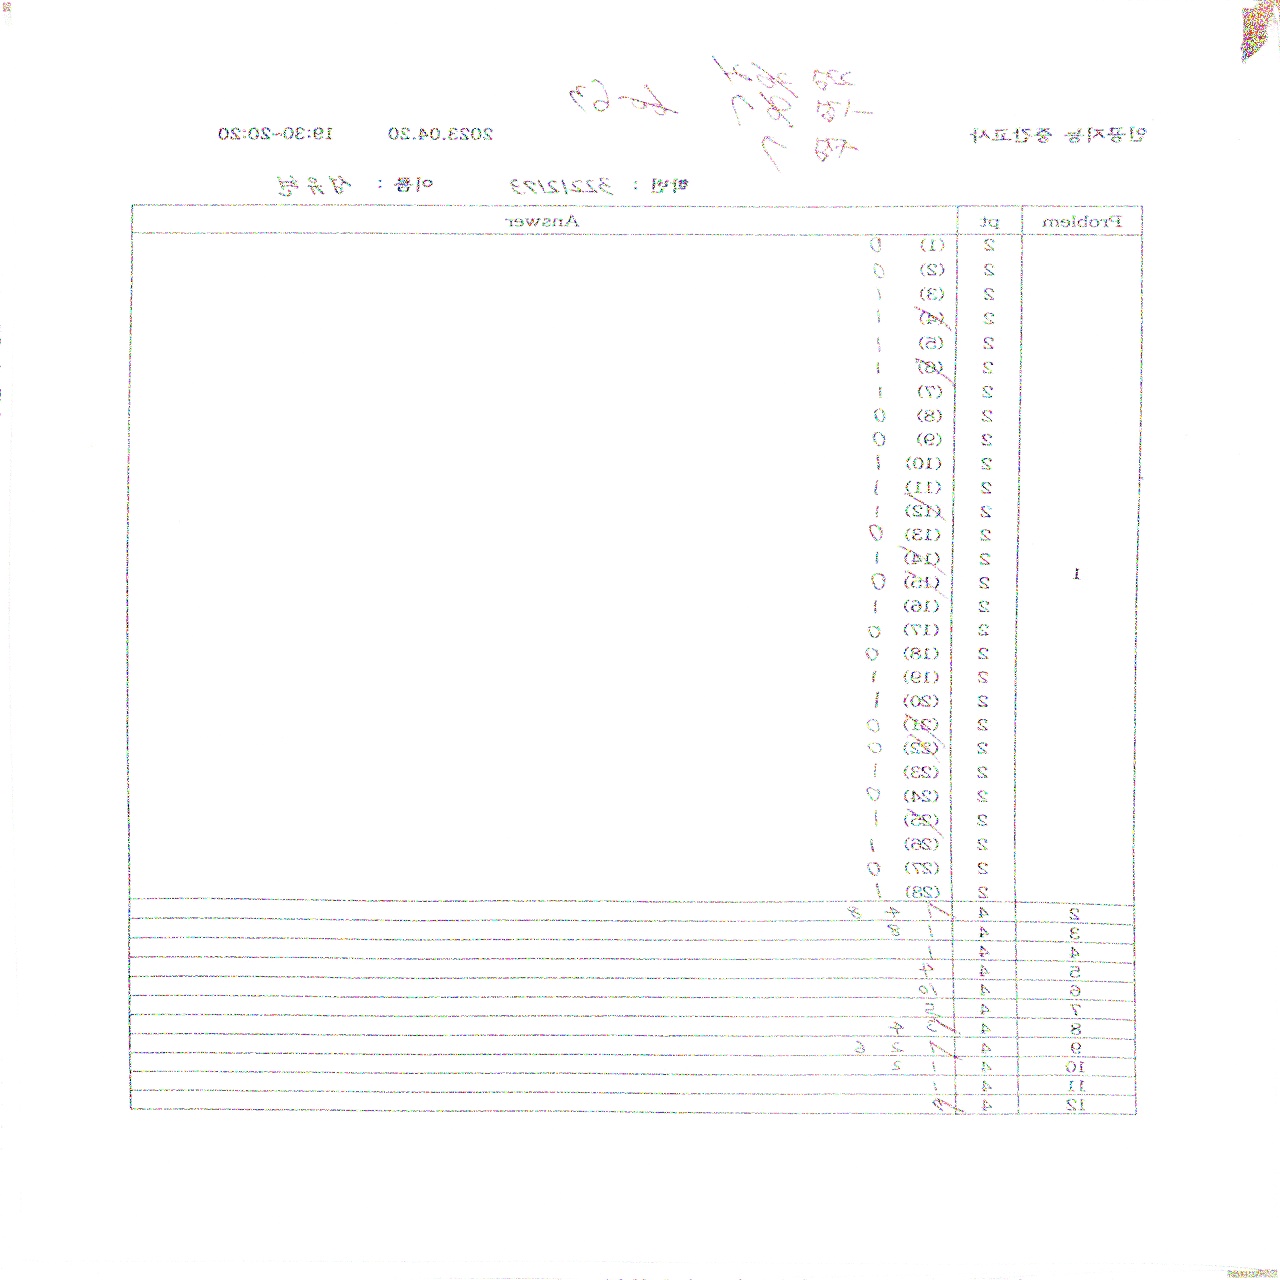 인공지능 중간고사 2023.04.20 19:30~20:20
학번 : 이름 :
Problem pt Answer
2 (1) 0
2 (2) 0
2 (3) 1
2 (4) 1
2 (5) 1
2 (6) 1
2 (7) 1
2 (8) 0
2 (9) 0
2 (10) 1
2 (11) 1
2 (12) 1
2 (13) 0
2 (14) 1
1 2 (15) 0
2 (16) 1
2 (17) 0
2 (18) 0
2 (19) 1
2 (20) 1
2 (21) 0
2 (22) 0
2 (23) 1
2 (24) 0
2 (25) 1
2 (26) 1
2 (27) 0
2 (28) 1
2 4 1 4 8
3 4 1 8
4 4 1
5 4 4
6 4
7 4
8 4 3 4
9 4 1
10 4 1
11 4 1
12 4